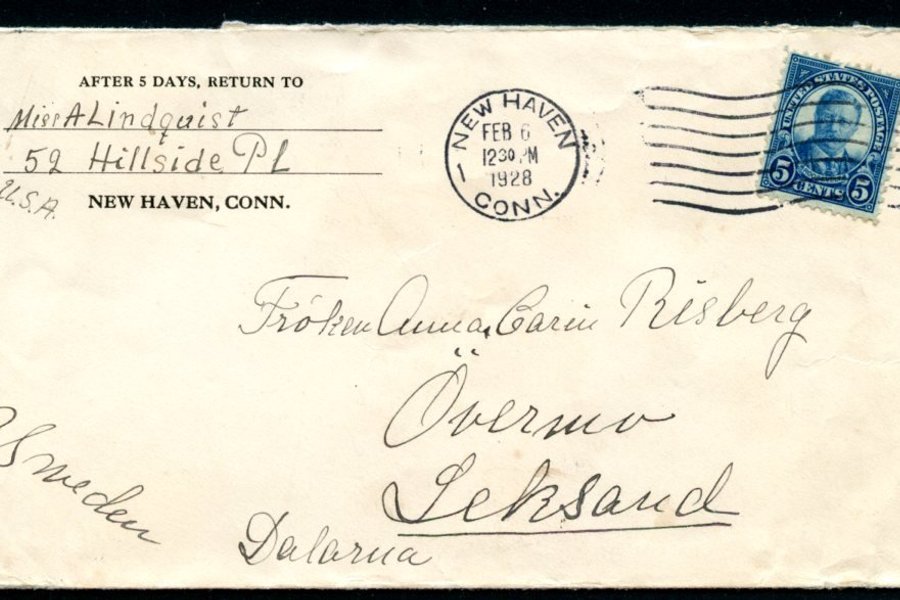 AFTER 5 DAYS, RETURN TO
Miss A Lindquist
52 Hillside Pl
NEW HAVEN, CONN.
U.S.A.
NEW HAVEN
FEB 6
12 30 PM
1928
1
CONN.
UNITED STATES POSTAGE
5 CENTS 5
Fröken Anna Carin Risberg
Övermo
Leksand
Dalarna
Sweden